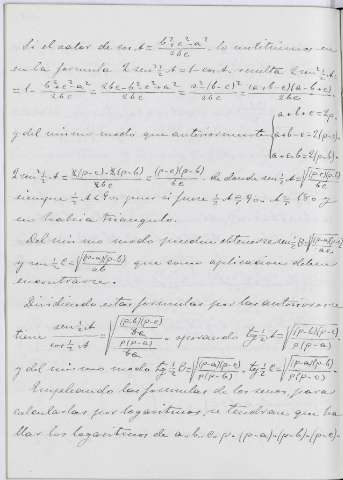 Si el valor de cos A = (b²+c²-a²)/2bc lo sustituimos en
en la formula 2 sen² ½ A = 1 - cos A. resulta 2 sen² ½ A =
= 1 - (b²+c²-a²)/2bc = (2bc-b²-c²+a²)/2bc = (a²-(b-c)²)/2bc = (a+b-c)(a-b+c)/2bc
a+b+c=2p.
y del mismo modo que anteriormente a+b-c=2(p-c).
a+c-b=2(p-b).
2 sen² ½ A = 2(p-c)·2(p-b)/2bc = (p-c)(p-b)/bc · de donde sen ½ A = √((p-c)(p-b)/bc)
siempre ½ A < 90, pues si fuese ½ A = 90. A = 180 y
no habria triangulo.
Del mismo modo pueden obtenerse sen ½ B = √((p-a)(p-c)/ac)
y sen ½ C = √((p-a)(p-b)/ab) que como aplicacion deben
encontrarse.
Dividiendo estas formulas por las anteriores se
tiene sen ½ A / cos ½ A = √((p-b)(p-c)/bc) / √(p(p-a)/bc) · operando tg ½ A = √((p-b)(p-c)/p(p-a))
y del mismo modo tg ½ B = √((p-a)(p-c)/p(p-b)) · tg ½ C = √((p-a)(p-b)/p(p-c))
Empleando las formulas de los senos para
calcularlas por logaritmos, se tendran que ha
llar los logaritmos de a. b. c. p. (p-a). (p-b). (p-c).